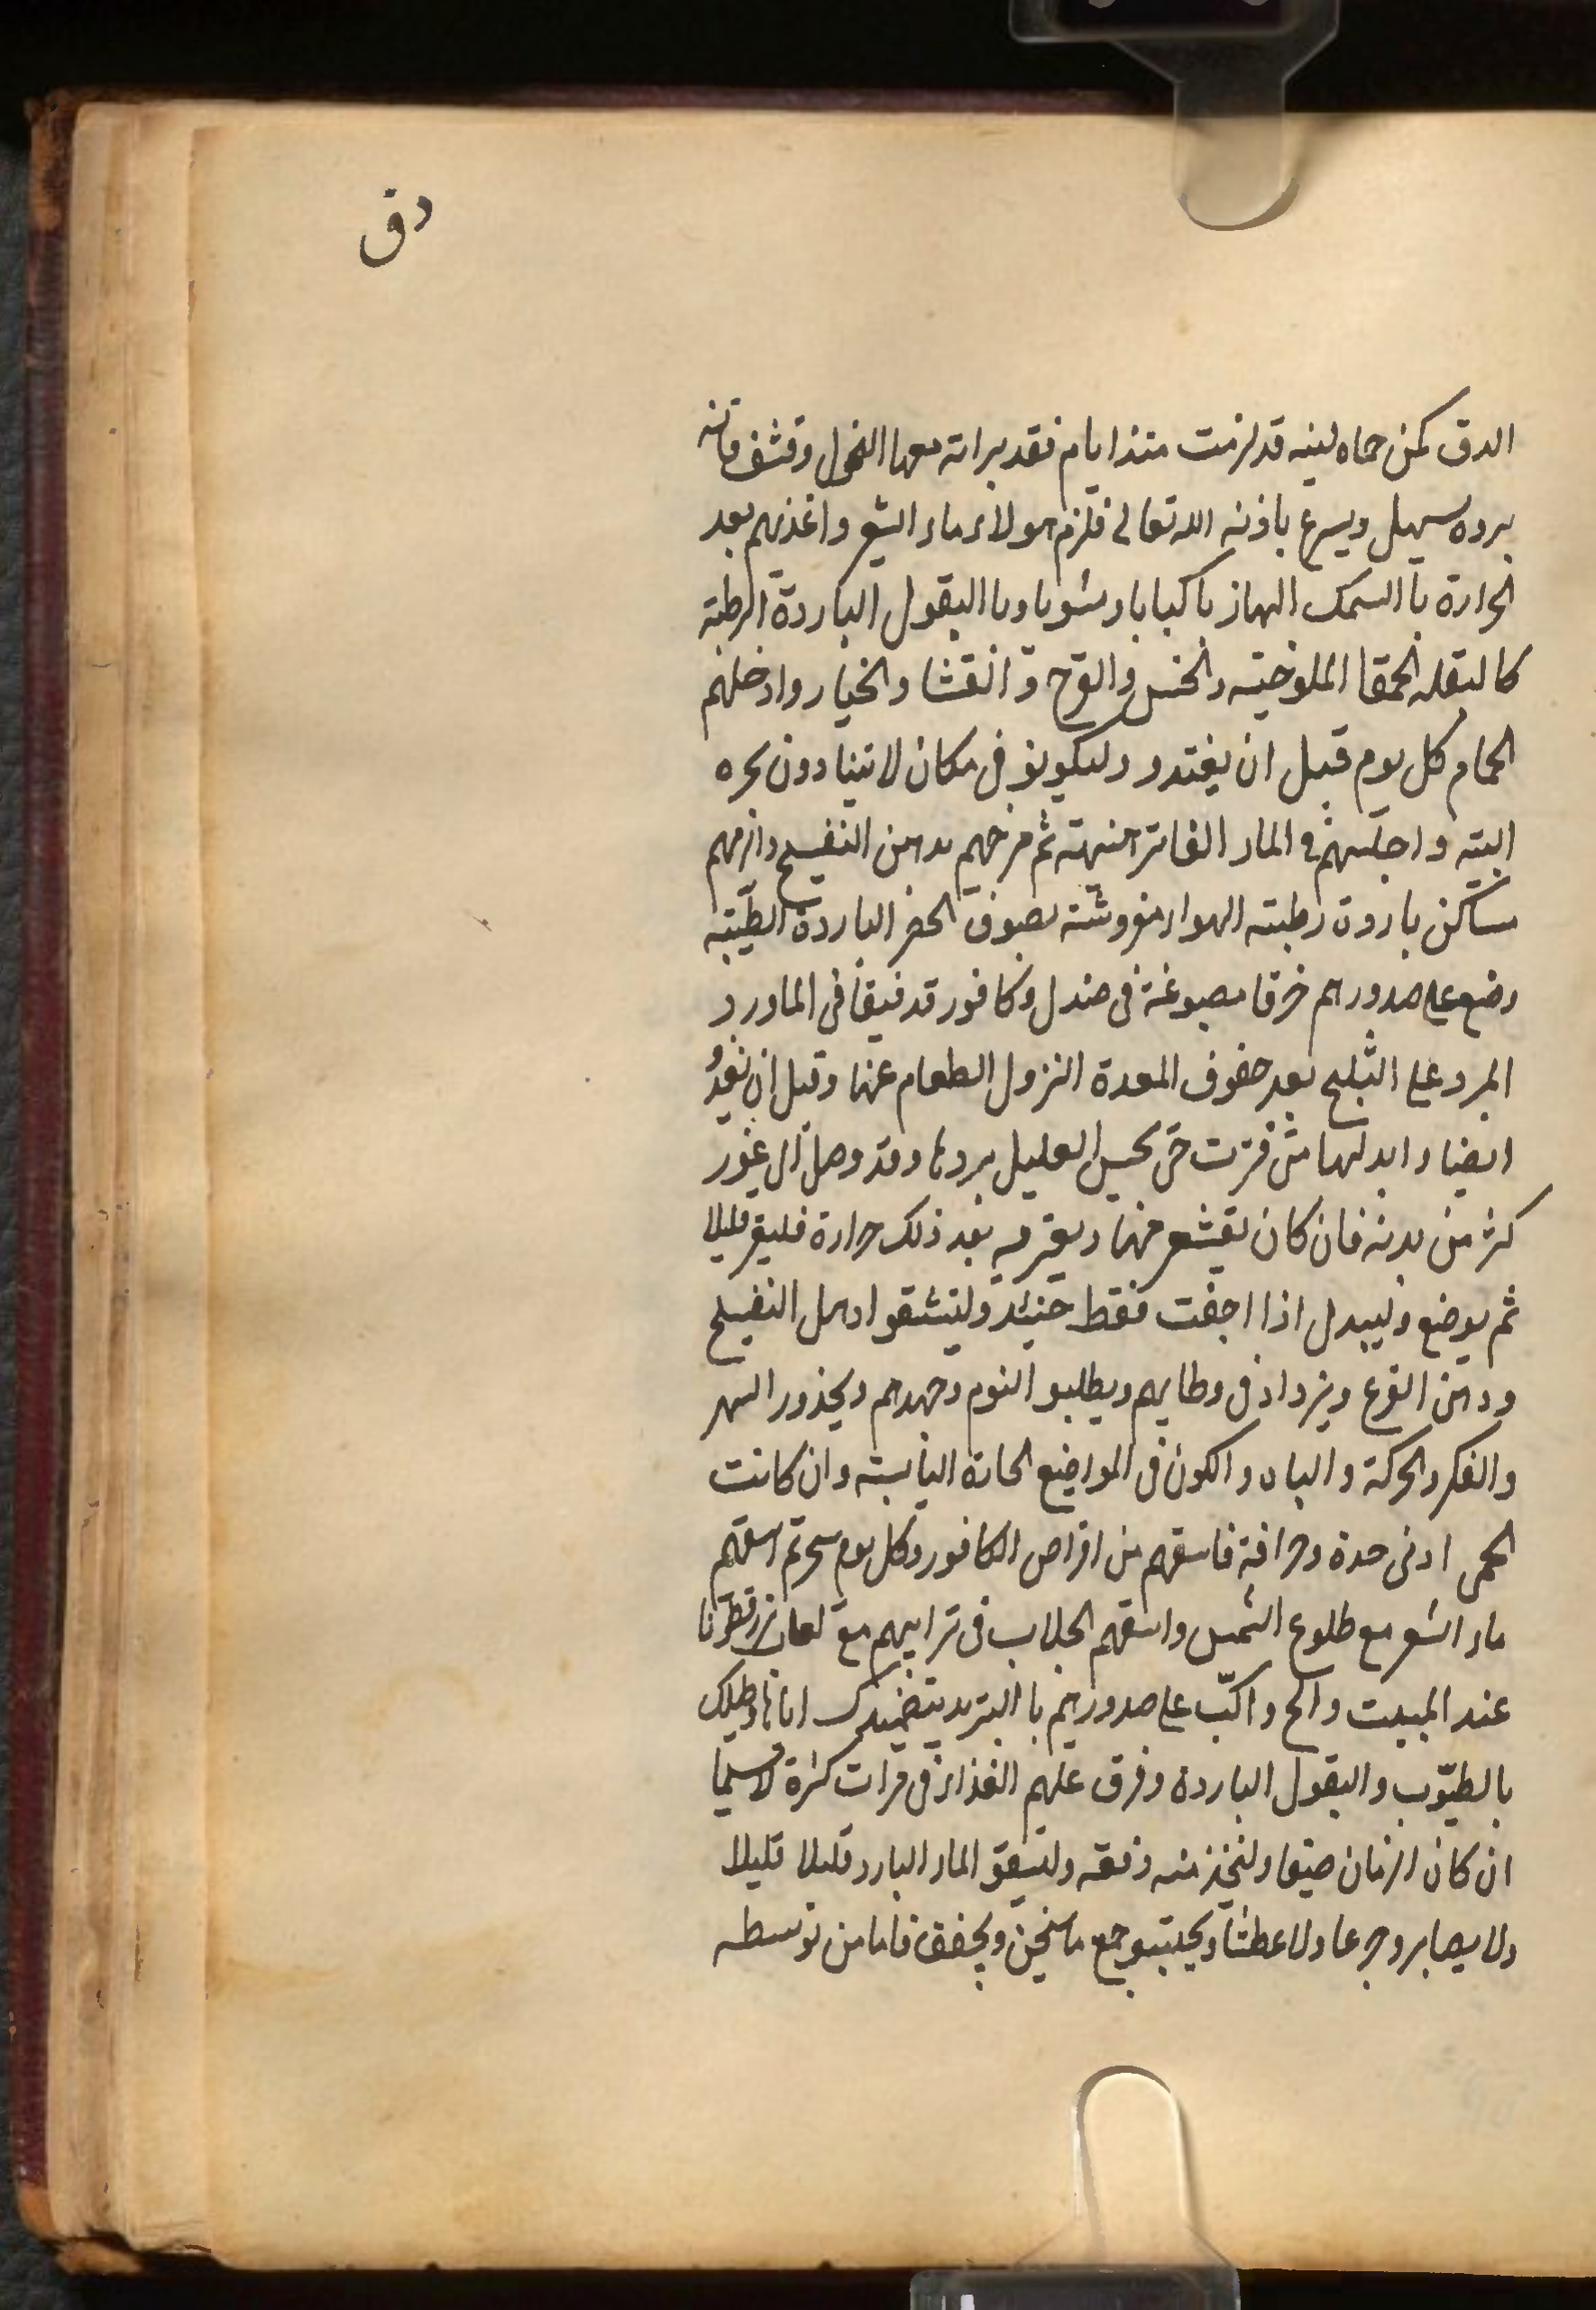 دق
الدق كمن حماه لينه قد لزمت منذ ايام فقد بداته معها النحول وقشف فانه
بروه سهل ويسرع باذنه الله تعالى فلزم هولاء ماء الشعير واغذيهم بعد
الحرارة با السمك الهازبا كبابا ومشويا وبا البقول الباردة الرطبة
كالبقله الحمقا الملوخيه والخس والقرع و القثا والخيار وادخلهم
الحمام كل يوم قبل ان يغتدو وليكونو فى مكان لا يتنادون بحره
البته واجلسهم فى الماء الفاتر هنيهة ثم مرخهم بدهن البنفسج والزمهم
مساكن باردة رطبته الهواء مفروشة بصنوف الخضر الباردة الطيبه
وضع على صدورهم خرقا مصبوغة فى صندل وكافور قد فيقا فى الماورد
المبرد على الثلج بعد خفوف المعدة النزول الطعام عنها وقبل ان تغدو
ايضا وابدلها متى فترت حتى يحس العليل بردها وقد وصل الى غور
كثر من بدنه فان كان يقشعر منها ويعتريه بعد ذلك حرارة فليقر قليلا
ثم يوضع وليبدل اذا اجفت فقط حينئد وليتنشقوا دهن البنفسج
ودهن القرع ويزداد فى وطايهم ويطلبو النوم وجهدهم ويحذور السهر
والفكر والحركة والباه والكون فى المواضع الحارة اليابسته وان كانت
الحمى ادنى حدة وحرافة فاسقهم من اقراص الكافور وكل يوم سحر ثم اسقهم
ماء الشعير مع طلوع الشمس واسقهم الجلاب فى شرابهم مع لعاب بزر قطونا
عند المبيت والح واكبّ على صدورهم با التبريد بتضميدك اياها وطليك
بالطيوب والبقول الباردة وفرق عليهم الغذاء فى مرات كثرة لا سيما
ان كان الزمان صيفا وليتخذ منه وليسقو الماء البارد قليلا قليلا
ولا يصابرو جوعا ولا عطشا ويجتنبو جمع ما سخن ويجفف فاما من توسطه